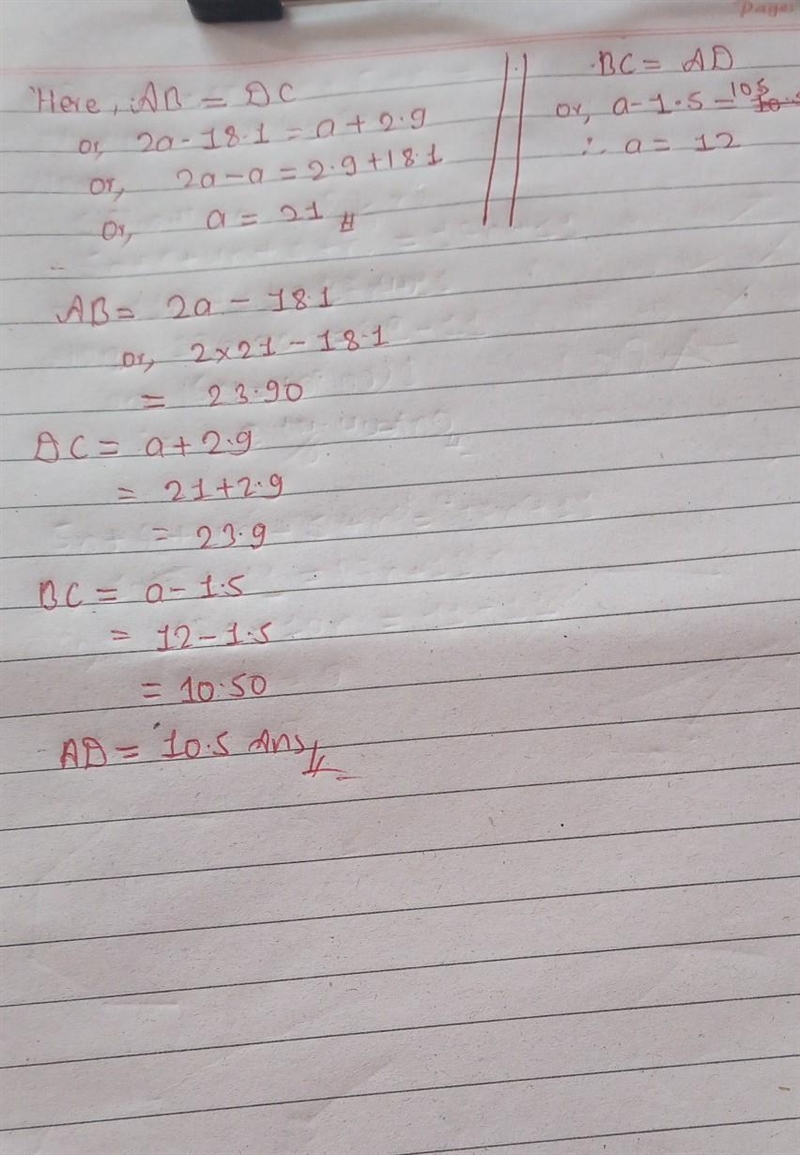 Page:
Here, AB = DC
or, 2a - 18.1 = a + 2.9
or, 2a - a = 2.9 + 18.1
or, a = 21
BC = AD
or, a - 1.5 = 10.5
∴ a = 12
AB = 2a - 18.1
or, 2 × 21 - 18.1
= 23.90
DC = a + 2.9
= 21 + 2.9
= 23.9
BC = a - 1.5
= 12 - 1.5
= 10.50
AD = 10.5 Ans